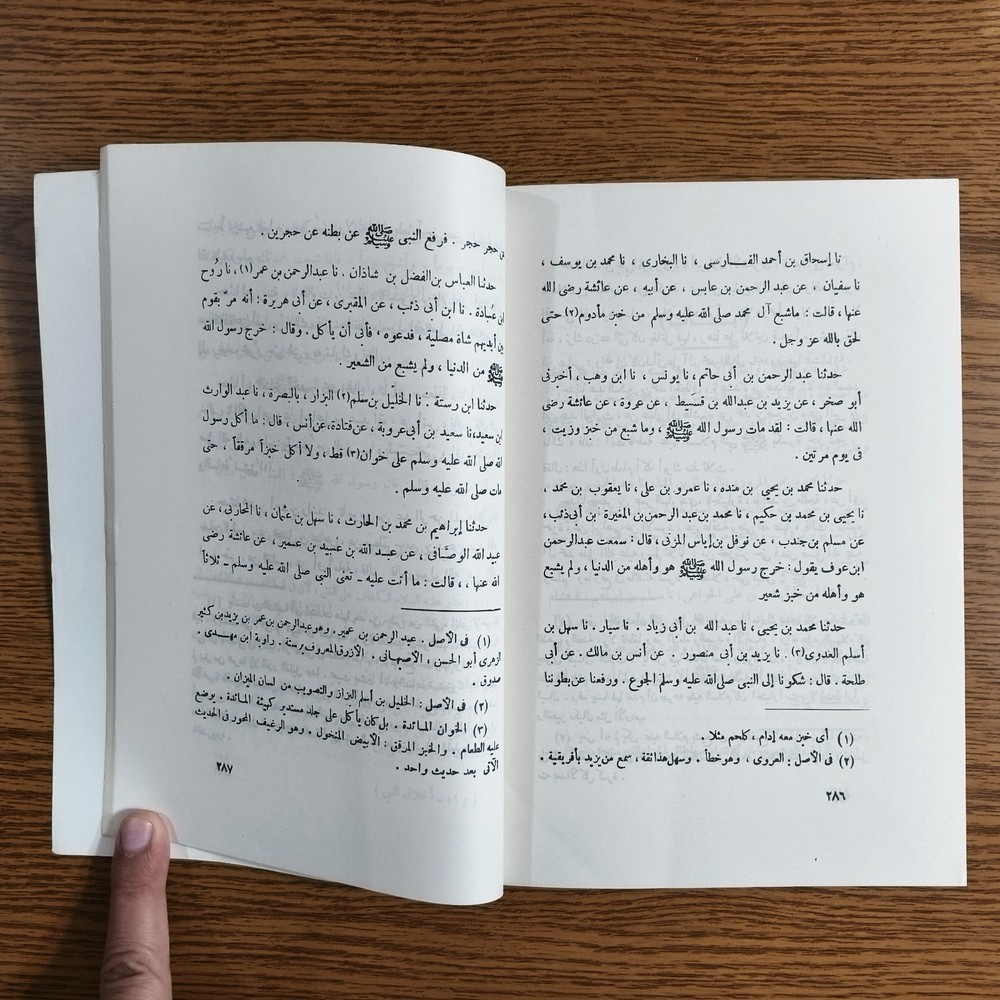 نا إسحاق بن أحمد الفـــارسى ، نا البخارى ، نا محمد بن يوسف ،
نا سفيان ، عن عبد الرحمن بن عابس ، عن أبيه ، عن عائشة رضى الله
عنها ، قالت : ماشبع آل محمد صلى الله عليه وسلم من خبز مأدوم(٢) حتى
لحق بالله عز وجل .
حدثنا عبد الرحمن بن أبى حاتم ، نا يونس ، نا ابن وهب ، أخبرنى
أبو صخر ، عن يزيد بن عبدالله بن قسَيط ، عن عروة ، عن عائشة رضى
الله عنها ، قالت : لقد مات رسول الله ﷺ ، وما شبع من خبز وزيت ،
فى يوم مرتين .
حدثنا محمد بن يحيى بن منده ، نا عمرو بن على ، نا يعقوب بن محمد ،
نا يحيى بن محمد بن حكيم ، نا محمد بن عبد الرحمن بن المغيرة بن أبى ذئب ،
عن مسلم بن جندب ، عن نوفل بن إياس المزنى ، قال : سمعت عبدالرحمن
ابن عوف يقول : خرج رسول الله ﷺ هو وأهله من الدنيا ، ولم يشبع
هو وأهله من خبز شعير
حدثنا محمد بن يحيى ، نا عبد الله بن أبى زياد . نا سيار . نا سهل بن
أسلم العدوى(٣) . نا يزيد بن أبى منصور . عن أنس بن مالك . عن أبى
طلحة . قال : شكونا إلى النبى صلى الله عليه وسلم الجوع . ورفعنا عن بطوننا
(١) أى خبز معه إدام ، كلحم مثلا .
(٢) فى الأصل : العروى ، وهو خطأ . وسهل هذا ثقة ، سمع من يزيد بأفريقية .
٢٨٦
حجر حجر . فرفع النبى ﷺ عن بطنه عن حجرين .
حدثنا العباس بن الفضل بن شاذان . نا عبدالرحمن بن عمر(١) ، نا رُوح
بن عبادة . نا ابن أبى ذئب ، عن المقبرى ، عن أبى هريرة : أنه مرّ بقوم
بين أيديهم شاة مصلية ، فدعوه ، فأبى أن يأكل . وقال : خرج رسول الله
ﷺ من الدنيا ، ولم يشبع من الشعير .
حدثنا ابن رستة . نا الخليل بن سلم(٢) البزار ، بالبصرة ، نا عبد الوارث
ابن سعيد ، نا سعيد بن أبى عروبة ، عن قتادة ، عن أنس ، قال : ما أكل رسول
الله صلى الله عليه وسلم على خوان(٣) قط ، ولا أكل خبزاً مرققاً ، حتى
مات صلى الله عليه وسلم .
حدثنا إبراهيم بن محمد بن الحارث ، نا سهل بن عثمان ، نا المحاربى ، عن
عبيد الله الوصَّافى ، عن عبـد الله بن عُبيد بن عمير ، عن عائشة رضى
الله عنها ، ، قالت : ما أتت عليه ـ تعنى النبى صلى الله عليه وسلم ـ ثلاثاً
(١) فى الأصل . عبد الرحمن بن عمير . وهو عبدالرحمن بن عمر بن يزيد بن كثير
الزهرى أبو الحسن ، الأصبهانى . الأزرق المعروف برستة . راوية ابن مهـدى .
صدوق .
(٢) فى الأصل : الخليل بن أسلم البزاز والتصويب من لسان الميزان .
(٣) الخوان المـائدة . بل كان يأكل على جلد مستدير كهيئة المـائدة . يوضع
عليه الطعام . والخبز المرقق : الأبيض المنخول . وهو الرغيف المحور فى الحديث
الآتى بعد حديث واحد .
٢٨٧